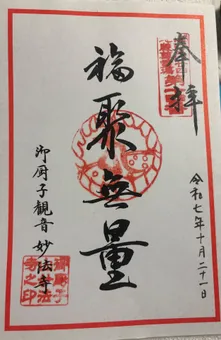 奉拝
福聚無量
御厨子観音妙法寺
令和七年十月二十一日